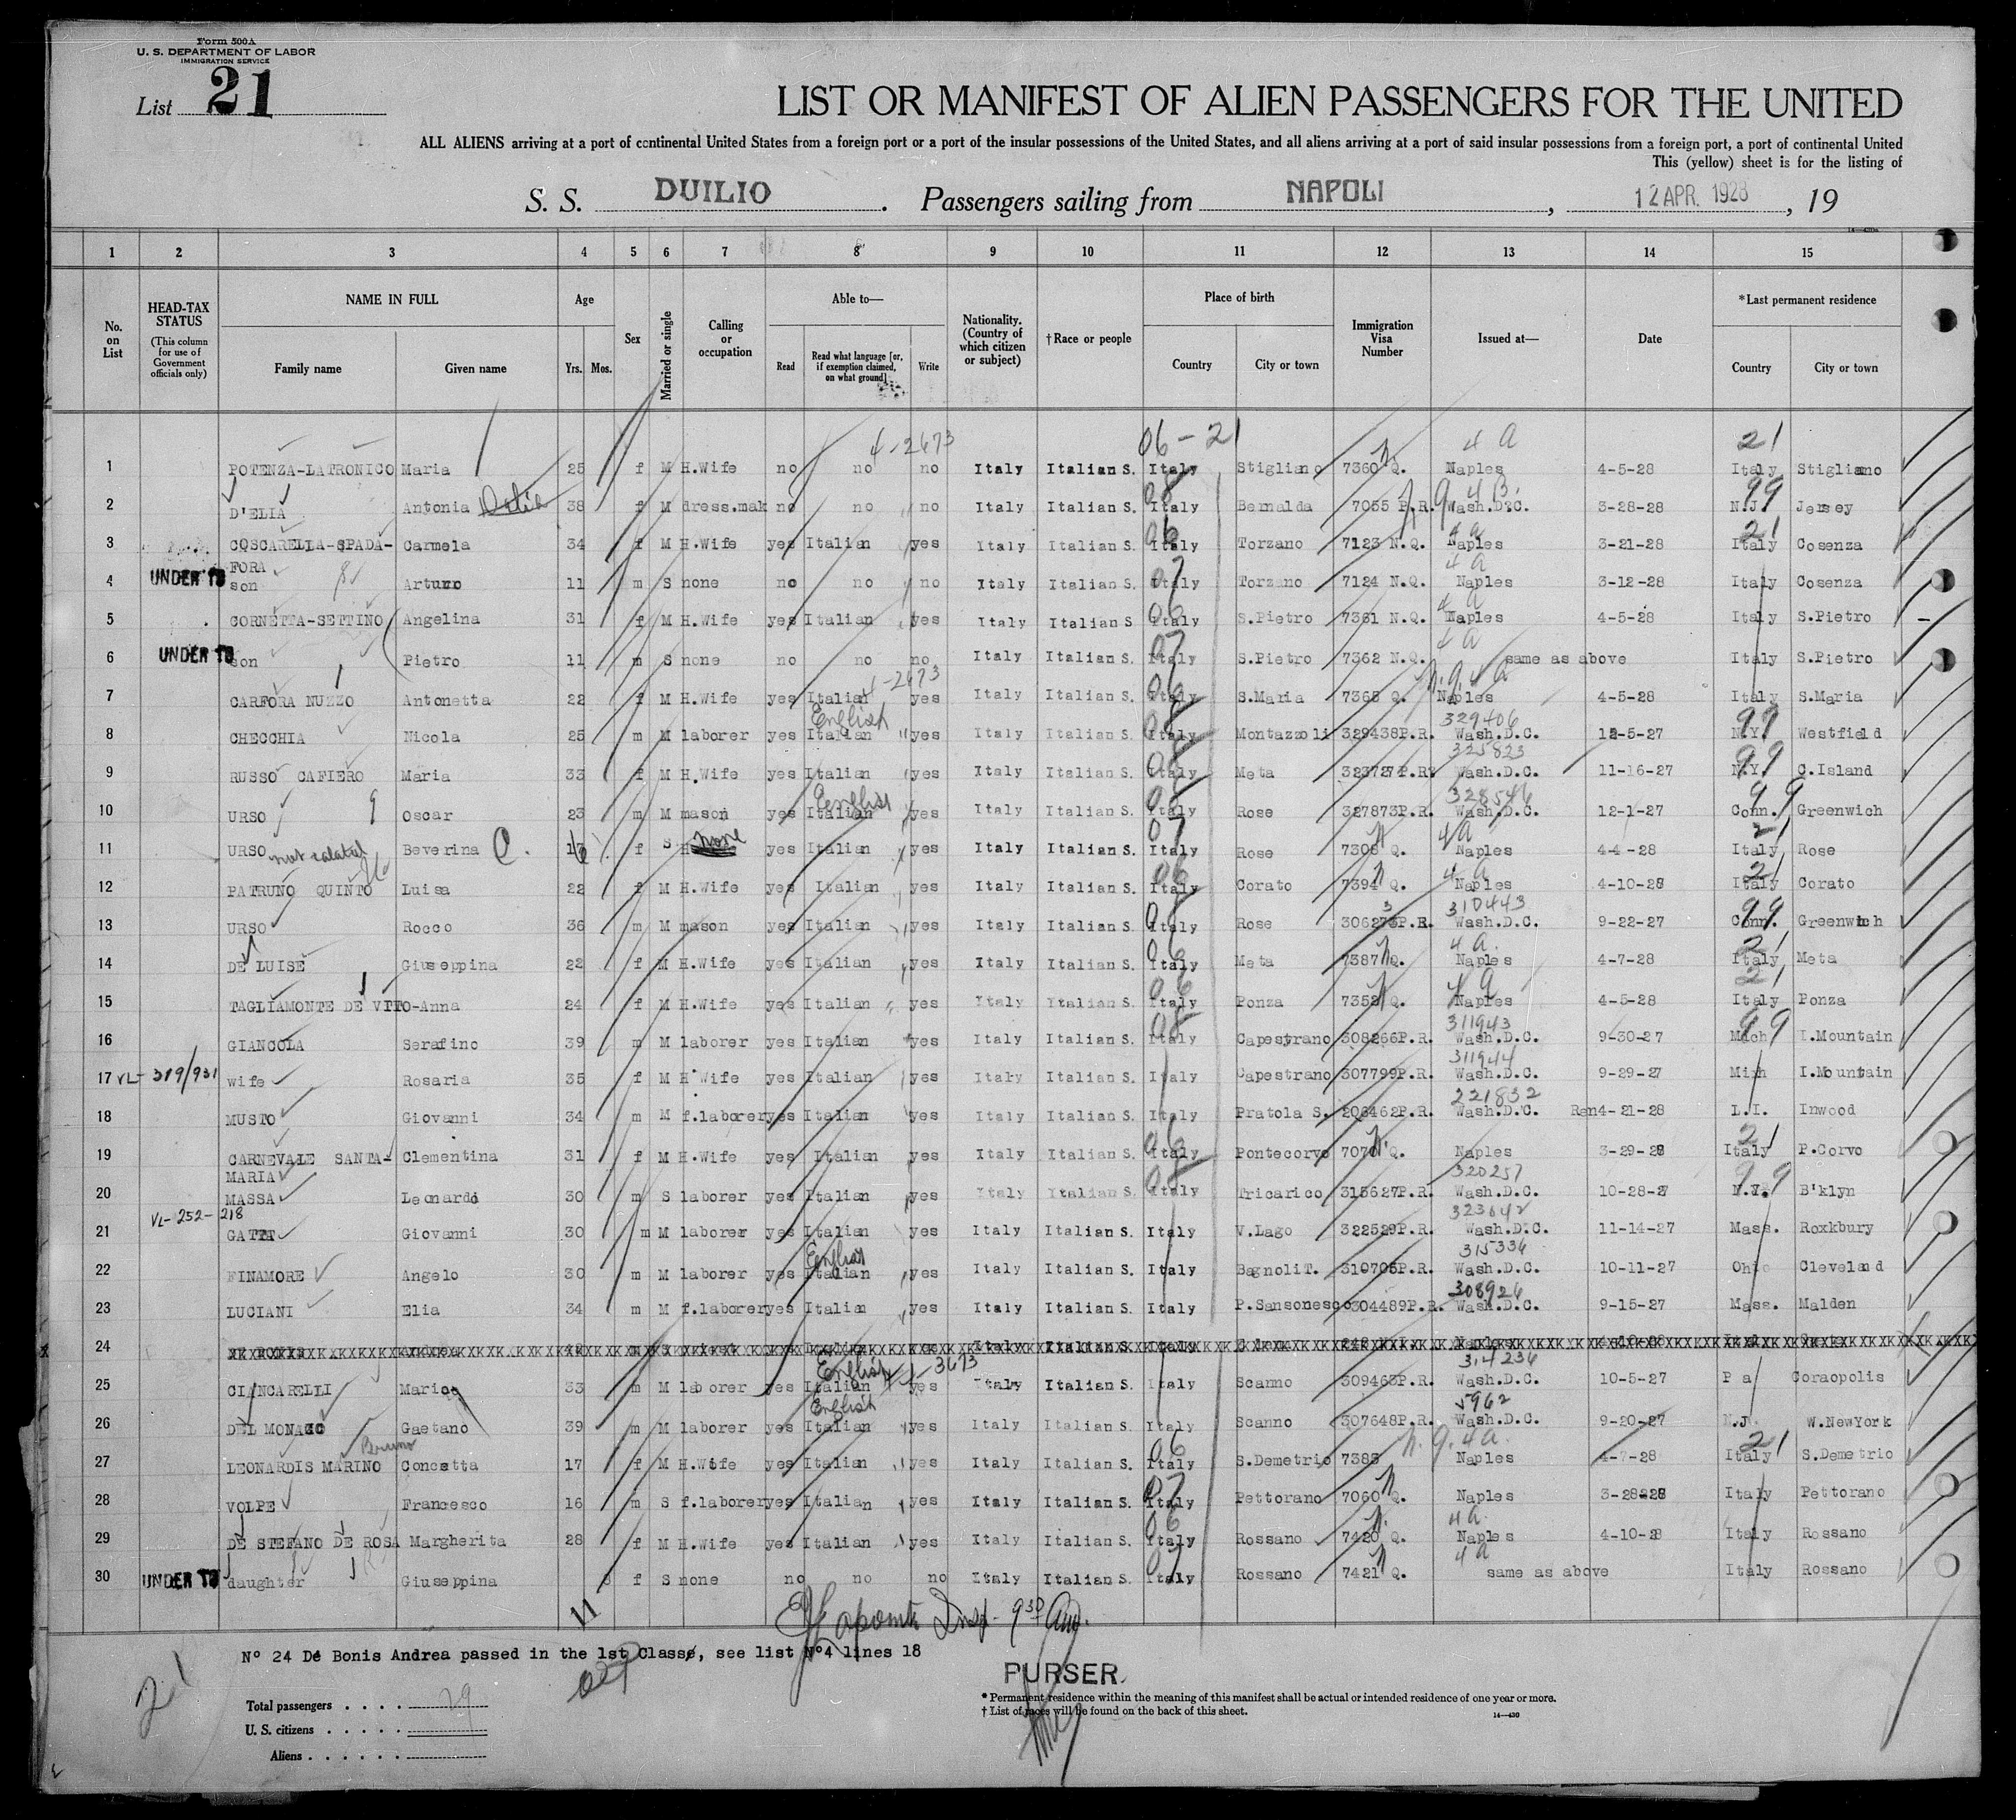 Form 500A
U. S. DEPARTMENT OF LABOR
IMMIGRATION SERVICE
List 21
LIST OR MANIFEST OF ALIEN PASSENGERS FOR THE UNITED
ALL ALIENS arriving at a port of continental United States from a foreign port or a port of the insular possessions of the United States, and all aliens arriving at a port of said insular possessions from a foreign port, a port of continental United
This (yellow) sheet is for the listing of
S. S. DUILIO. Passengers sailing from NAPOLI, 12 APR. 1928, 19
1 2 3 4 5 6 7 8 9 10 11 12 13 14 15
No. on List
HEAD-TAX STATUS
(This column for use of Government officials only)
NAME IN FULL
Family name Given name
Age
Yrs. Mos.
Sex
Married or single
Calling or occupation
Able to—
Read
Read what language [or, if exemption claimed, on what ground]
Write
Nationality. (Country of which citizen or subject)
†Race or people
Place of birth
Country City or town
Immigration Visa Number
Issued at—
Date
*Last permanent residence
Country City or town
4-2673 06-21 4 A 21
1 POTENZA-LATRONICO Maria 25 f M H.Wife no no no Italy Italian S. Italy Stigliano 7360 Q. Naples 4-5-28 Italy Stigliano
2 D'ELIA Antonia 38 f M dress.mak no no no Italy Italian S. Italy Bernalda 7055 P.R. Wash.D.C. 3-28-28 N.J. Jersey
3 COSCARELLA-SPADA- Carmela 34 f M H.Wife yes Italian yes Italy Italian S. Italy Torzano 7123 N.Q. Naples 3-21-28 Italy Cosenza
FORA
4 UNDER 16 son Arturo 11 m S none no no no Italy Italian S. Italy Torzano 7124 N.Q. Naples 3-12-28 Italy Cosenza
5 CORNETTA-SETTINO Angelina 31 f M H.Wife yes Italian yes Italy Italian S Italy S.Pietro 7361 N.Q. Naples 4-5-28 Italy S.Pietro
6 UNDER 16 son Pietro 11 m S none no no no Italy Italian S. Italy S.Pietro 7362 N.Q. same as above Italy S.Pietro
7 CARFORA NUZZO Antonetta 22 f M H.Wife yes Italian yes Italy Italian S. Italy S.Maria 7365 Q. Naples 4-5-28 Italy S.Maria
English 329406
8 CHECCHIA Nicola 25 m M laborer yes Italian yes Italy Italian S. Italy Montazzoli 329438P.R. Wash.D.C. 12-5-27 N.Y. Westfield
325823
9 RUSSO CAFIERO Maria 33 f M H.Wife yes Italian yes Italy Italian S. Italy Meta 323727P.R. Wash.D.C. 11-16-27 N.Y. C.Island
English 328546
10 URSO Oscar 23 m M mason yes Italian yes Italy Italian S. Italy Rose 327873P.R. Wash.D.C. 12-1-27 Conn. Greenwich
11 URSO not related Beverina C. 16 f S none yes Italian yes Italy Italian S. Italy Rose 7308 Q. Naples 4-4-28 Italy Rose
12 PATRUNO QUINTO Luisa 22 f M H.Wife yes Italian yes Italy Italian S. Italy Corato 7394 Q. Naples 4-10-28 Italy Corato
310443
13 URSO Rocco 36 m M mason yes Italian yes Italy Italian S. Italy Rose 306273P.R. Wash.D.C. 9-22-27 Conn. Greenwich
14 DE LUISE Giuseppina 22 f M H.Wife yes Italian yes Italy Italian S. Italy Meta 7387 Q. Naples 4-7-28 Italy Meta
15 TAGLIAMONTE DE VITO-Anna 24 f M H.Wife yes Italian yes Italy Italian S. Italy Ponza 7352 Q. Naples 4-5-28 Italy Ponza
311943
16 GIANCOLA Serafino 39 m M laborer yes Italian yes Italy Italian S. Italy Capestrano 308266P.R. Wash.D.C. 9-30-27 Mich I.Mountain
311944
17 VL-319/931 wife Rosaria 35 f M H.Wife yes Italian yes Italy Italian S. Italy Capestrano 307799P.R. Wash.D.C. 9-29-27 Mich I.Mountain
221832
18 MUSTO Giovanni 34 m M f.laborer yes Italian yes Italy Italian S. Italy Pratola S. 206462P.R. Wash.D.C. Ren4-21-28 L.I. Inwood
19 CARNEVALE SANTA- Clementina 31 f M H.Wife yes Italian yes Italy Italian S. Italy Pontecorvo 7070 Q. Naples 3-29-28 Italy P.Corvo
MARIA 320257
20 MASSA Leonardo 30 m S laborer yes Italian yes Italy Italian S. Italy Tricarico 315627P.R. Wash.D.C. 10-28-27 N.Y. B'klyn
VL-252-218 323642
21 Giovanni 30 m M laborer yes Italian yes Italy Italian S. Italy V.Lago 322529P.R. Wash.D.C. 11-14-27 Mass. Roxkbury
English 315336
22 FINAMORE Angelo 30 m M laborer yes Italian yes Italy Italian S. Italy BagnoliT. 310705P.R. Wash.D.C. 10-11-27 Ohio Cleveland
308926
23 LUCIANI Elia 34 m M f.laborer yes Italian yes Italy Italian S. Italy P.Sansonesco 304489P.R. Wash.D.C. 9-15-27 Mass. Malden
24
English 4-3673 314236
25 CIANCARELLI Mario 33 m M laborer yes Italian yes Italy Italian S. Italy Scanno 309463P.R. Wash.D.C. 10-5-27 Pa Coraopolis
English 5962
26 DEL MONACO Gaetano 39 m M laborer yes Italian yes Italy Italian S. Italy Scanno 307648P.R. Wash.D.C. 9-20-27 N.J. W.NewYork
Bruno
27 LEONARDIS MARINO Concetta 17 f M H.Wife yes Italian yes Italy Italian S. Italy S.Demetrio 7385 Naples 4-7-28 Italy S.Demetrio
28 VOLPE Francesco 16 m S f.laborer yes Italian yes Italy Italian S. Italy Pettorano 7060 Q. Naples 3-28-28 Italy Pettorano
29 DE STEFANO DE ROSA Margherita 28 f M H.Wife yes Italian yes Italy Italian S. Italy Rossano 7420 Q. Naples 4-10-28 Italy Rossano
30 UNDER 16 daughter Giuseppina f S none no no no Italy Italian S. Italy Rossano 7421 Q. same as above Italy Rossano
11
N° 24 De Bonis Andrea passed in the 1st Classe, see list N°4 lines 18
21
PURSER.
Total passengers . . . . 29
U. S. citizens . . . . .
Aliens . . . . . .
* Permanent residence within the meaning of this manifest shall be actual or intended residence of one year or more.
† List of races will be found on the back of this sheet.
14—430